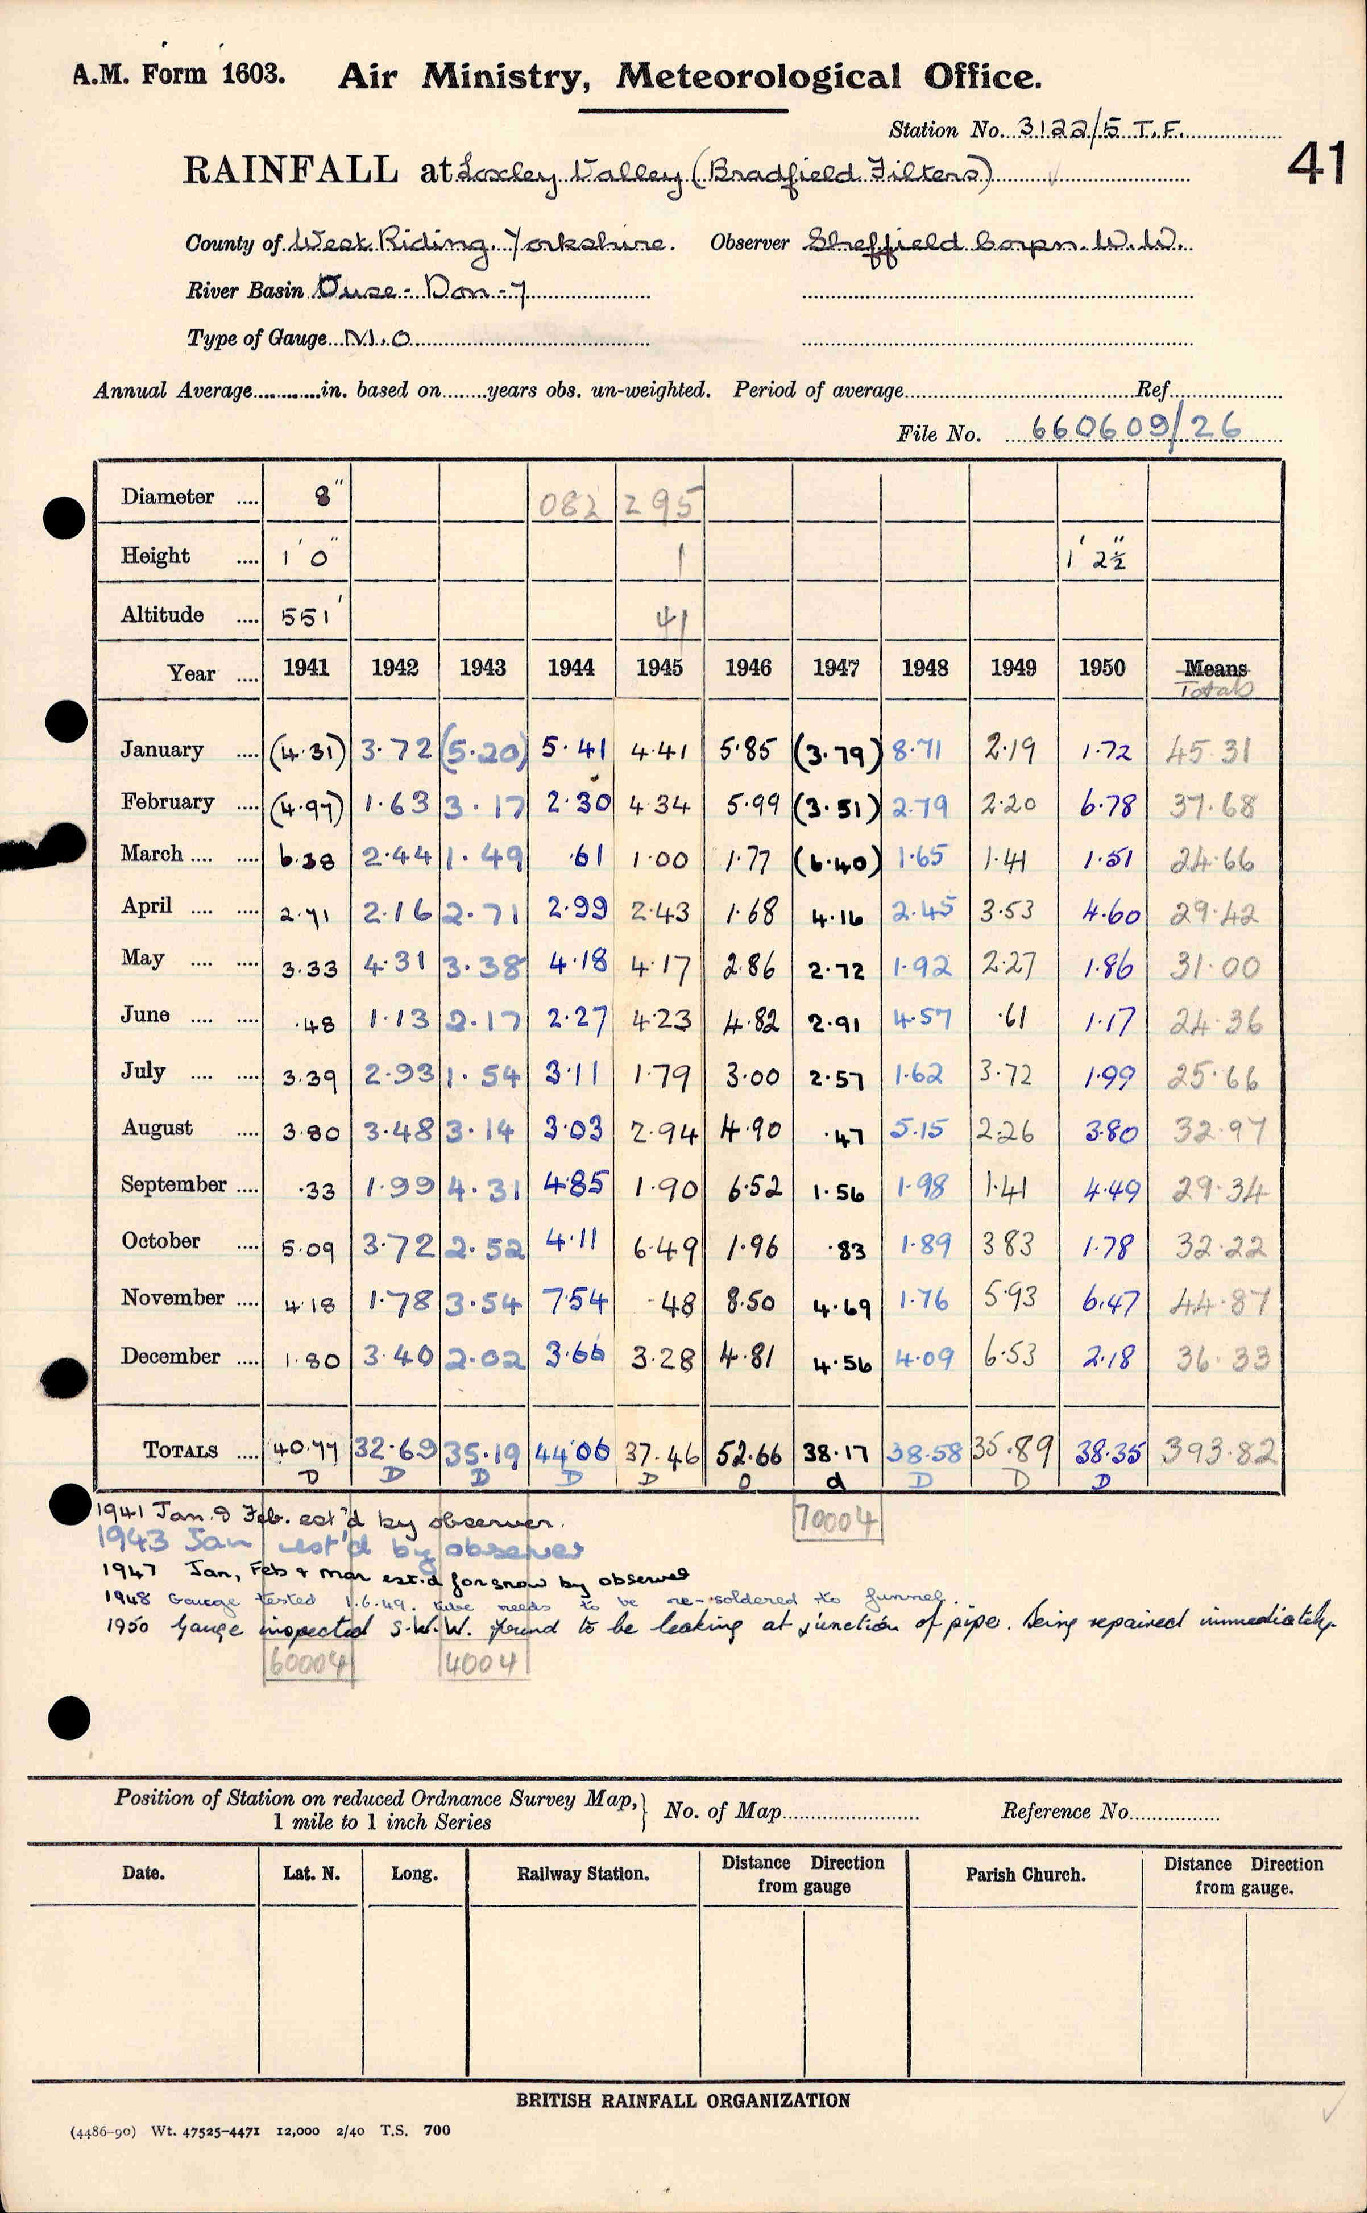 A.M. Form 1603. Air Ministry, Meteorological Office.
Station No. 3122/5 T.F.
41
RAINFALL at Loxley Valley (Bradfield Filters)
County of West Riding. Yorkshire. Observer Sheffield Corpn. W.W.
River Basin Ouse - Don - 7
Type of Gauge M.O
Annual Average in. based on years obs. un-weighted. Period of average Ref
File No. 660609/26
Diameter 8" 082 295
Height 1' 0" 1 1' 2½"
Altitude 551' 41
Year 1941 1942 1943 1944 1945 1946 1947 1948 1949 1950 Means
Totals
January (4.31) 3.72 (5.20) 5.41 4.41 5.85 (3.79) 8.71 2.19 1.72 45.31
February (4.97) 1.63 3.17 2.30 4.34 5.99 (3.51) 2.79 2.20 6.78 37.68
March 6.38 2.44 1.49 .61 1.00 1.77 (6.40) 1.65 1.41 1.51 24.66
April 2.71 2.16 2.71 2.99 2.43 1.68 4.16 2.45 3.53 4.60 29.42
May 3.33 4.31 3.38 4.18 4.17 2.86 2.72 1.92 2.27 1.86 31.00
June .48 1.13 2.17 2.27 4.23 4.82 2.91 4.57 .61 1.17 24.36
July 3.39 2.93 1.54 3.11 1.79 3.00 2.57 1.62 3.72 1.99 25.66
August 3.80 3.48 3.14 3.03 2.94 4.90 .47 5.15 2.26 3.80 32.97
September .33 1.99 4.31 4.85 1.90 6.52 1.56 1.98 1.41 4.49 29.34
October 5.09 3.72 2.52 4.11 6.49 1.96 .83 1.89 3 83 1.78 32.22
November 4.18 1.78 3.54 7.54 .48 8.50 4.69 1.76 5.93 6.47 44.87
December 1.80 3.40 2.02 3.66 3.28 4.81 4.56 4.09 6.53 2.18 36.33
TOTALS 40.77 32.69 35.19 44.06 37.46 52.66 38.17 38.58 35.89 38.35 393.82
D D D D D D d D D D
1941 Jan. & Feb. est'd by observer.
70004
1943 Jan est'd by observer
1947 Jan, Feb + Mar est.d for snow by observer
1948 Gauge tested 1.6.49. tube needs to be re-soldered to funnel.
1950 Gauge inspected S.W.W. found to be leaking at junction of pipe. Being repaired immediately.
60004 4004
Position of Station on reduced Ordnance Survey Map, No. of Map Reference No.
1 mile to 1 inch Series
Date. Lat. N. Long. Railway Station. Distance Direction from gauge Parish Church. Distance Direction from gauge.
BRITISH RAINFALL ORGANIZATION
(4486-90) Wt. 47525-4471 12,000 2/40 T.S. 700